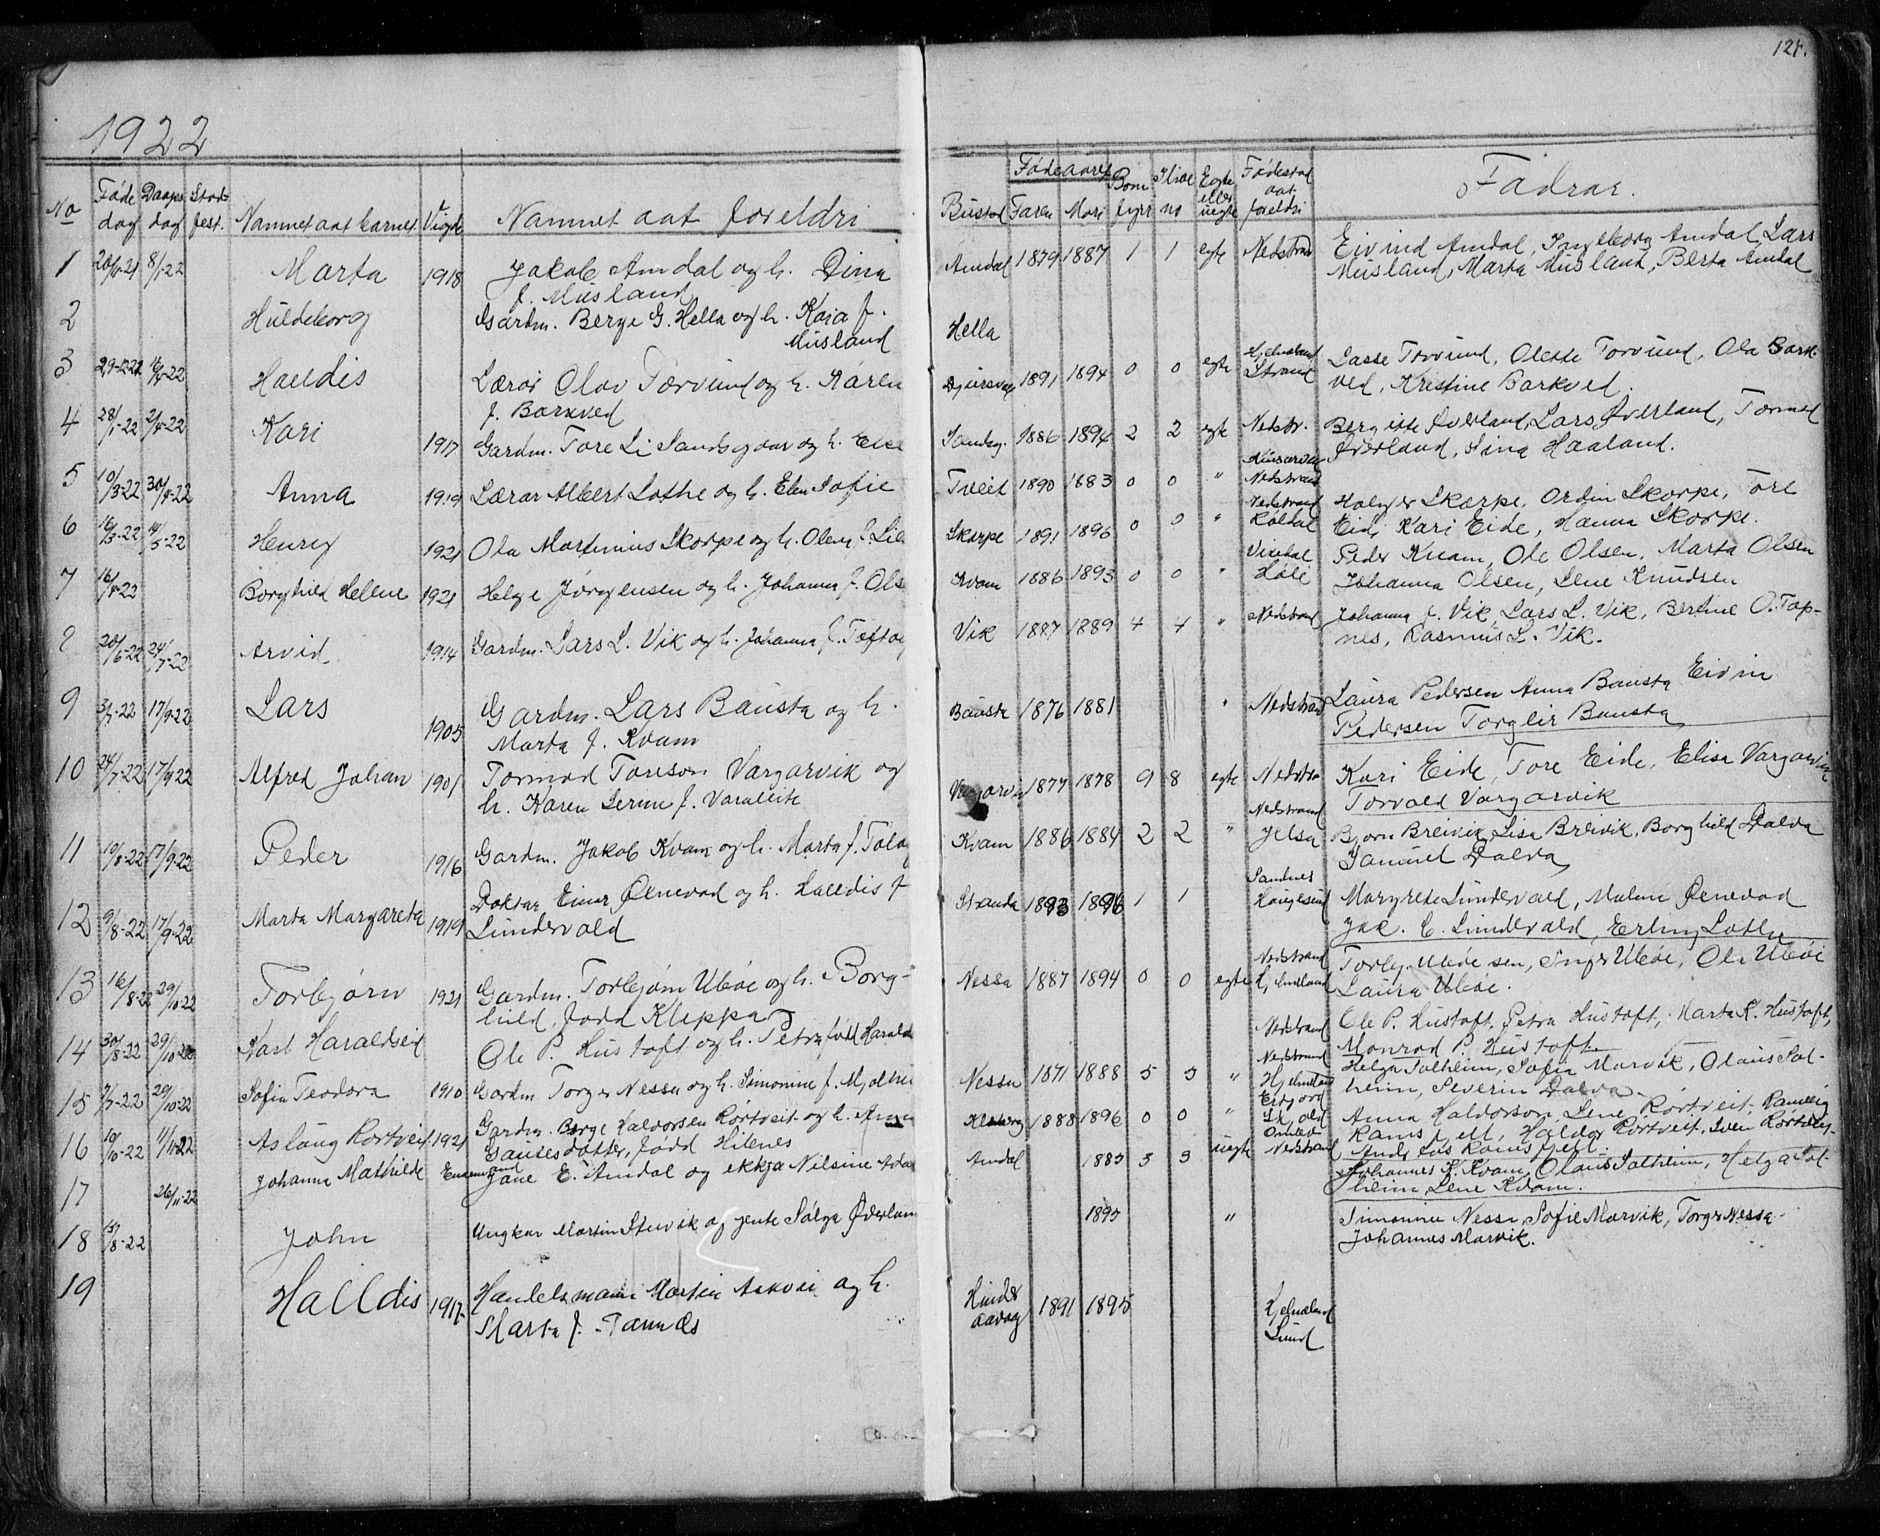 1922
No Føde dag Daaps dag Stad fest. Namnet aat barnet Vigde Namnet aat foreldri
1 8/1-22 Marta 1918 Jakob Amdal og h. Dina
f. Musland
2 Huldeborg Gardm. Berge G. Hella og h. Kaia f.
Musland
3 Halldis Lærar Olav Torvund og h. Karen
f. Barkved
4 28/1-22 2/4-22 Kari 1917 Gardm. Tore Li Sandsgaar og h. Else
5 10/3-22 30/4-22 Anna 1919 Lærar Albert Lothe og h. Elen Sofie
6 16/3-22 14/5-22 Henry 1921 Ola Martinius Skorpe og h. Olene f. Lil
7 16/4-22 Borghild Hellene 1921 Helge Jørgensen og h. Johanna f. Olse
8 20/6-22 24/7-22 Arvid 1914 Gardm. Lars L. Vik og h. Johanna f. Toftøy
9 3/7-22 17/9-22 Lars 1905 Gardm. Lars Bausta og h.
Marta f. Kvam
10 24/7-22 17/9-22 Alfred Johan 1901 Tormod Toreson Vargarvik og
h. Karen Serine f.
11 10/8-22 17/9-22 Peder 1916 Gardm. Jakob Kvam og h. Marta f.
12 9/8-22 17/9-22 Marta Margareta 1919 Doktar Einar Ølnevad og h. Halldis f
Lundervald
13 16/8-22 29/10-22 Torbjørn 1921 Gardm. Torbjørn Ubøe og h. Borg-
hild, fødd Kleppa
14 30/8-22 29/10-22 Karl Haraldseid Ole P. Hustoft og h. Petra fødd Harald
15 7/7-22 29/10-22 Sofia Teodora 1910 Gardm Torger Nessa og h. Simonine f. Mjølhu
16 10/10-22 11/11-22 Aslaug Rørtveit 1921 Gardm. Børge Halvorsen Rørtveit og h. Anna
Gautesdotter, fødd Hilenes
17 26/11-22 Johanne Mathilde Enkemand Jane E. Amdal og ekkja Nilsine Amda
18 /8-22 John Ungkar Martin Stuvik og gjente Salga Øverlan
19 Halldis 1917 Handelsmann Martin Askvei og h.
Marta f. Tarnes
Fødeaaret
Bustad Faren Mori Born fyrr Ilive no Egte eller uegte Fødestad aat foreldri Fadrar.
Amdal 1879 1887 1 1 egte Nedstrand Eivind Amdal, Ingeborg Amdal, Lars
Musland, Marta Musland, Berta Amdal
Hella
1891 1894 0 0 egte Hjelmeland Strand Lasse Torvund, Olette Torvund, Ola Bark-
ved, Kristine Barkved.
Sandsg. 1886 1894 2 2 egte Nedstr. Bergitte Øverland, Lars Øverland, Tormod
Øverland, Sina Haaland.
Tveit 1890 1883 0 0 " Nedstrand
Holger Skorpe, Ordin Skorpe, Tore
Skorpe 1891 1896 0 0 " Nedstrand Røldal Eide, Kari Eide, Hanna Skorpe.
Kvam 1886 1893 0 0 " Høle Peder Kvam, Ole Olsen, Marta Olsen
Johanna Olsen, Lene Knudsen
Vik 1887 1889 4 4 " Nedstrand Johanna f. Vik, Lars L. Vik, Berthe O. Top-
nes, Rasmus L. Vik.
Bausta 1876 1881 " Nedstrand Laura Pedersen Anna Bausta Eivin
Pedersen Torgeir Bausta
Vargarvik 1877 1878 9 8 egte Nedstra Kari Eide, Tore Eide, Elisa Vargarvik
Torvald Vargarvik
Kvam 1886 1884 2 2 " Nedstrand Jelsa Bjørn Breivik, Lisa Breivik, Borghild Dalva
Samuel Dalva
Stranda 1893 1896 1 1 Sandnes Haugesund Margrete Lundervald, Malene Ølnevad
Jak. C. Lundervald, Erling Lothe
Nessa 1887 1894 0 0 egte Nedstrand Hjelmeland Torbj. Ubøe sen, Inger Ubøe, Ola Ubøe
Laura Ubøe.
Nedstrand Ole P. Hustoft, Petra Hustoft, Marta K. Hustoft,
Monrad P. Hustoft
Nessa 1871 1888 5 5 " Nedstrand Hjelmeland Helga Solheim, Sofia Marvik, Olaus Sol-
heim, Severin Dalva
1888 1896 0 0 " Anna Haldorson Lene Rørtveit, Rannveig
Ramsfjell, Haldor Rørtveit, Sven Rørtveit,
Anders Ramsfjell.
Amdal 1885 3 3 uegte Nedstrand Johannes K. Kvam, Olaus Solheim, Helga Sol-
heim, Lene Kvam.
1895 " Simonine Nessa Sofie Marvik, Torger Nessa
Johannes Marvik.
Hinderaavåg 1891 1895 Hjelmeland
Lund